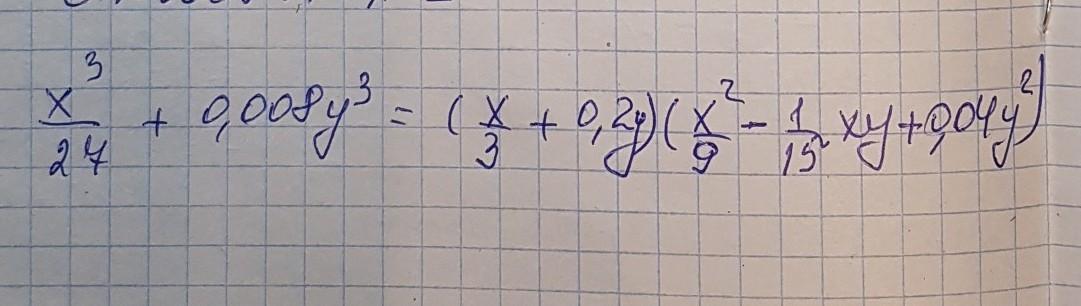 x³/27 + 0,008y³ = (x/3 + 0,2y)(x²/9 - 1/15 xy + 0,04y²)